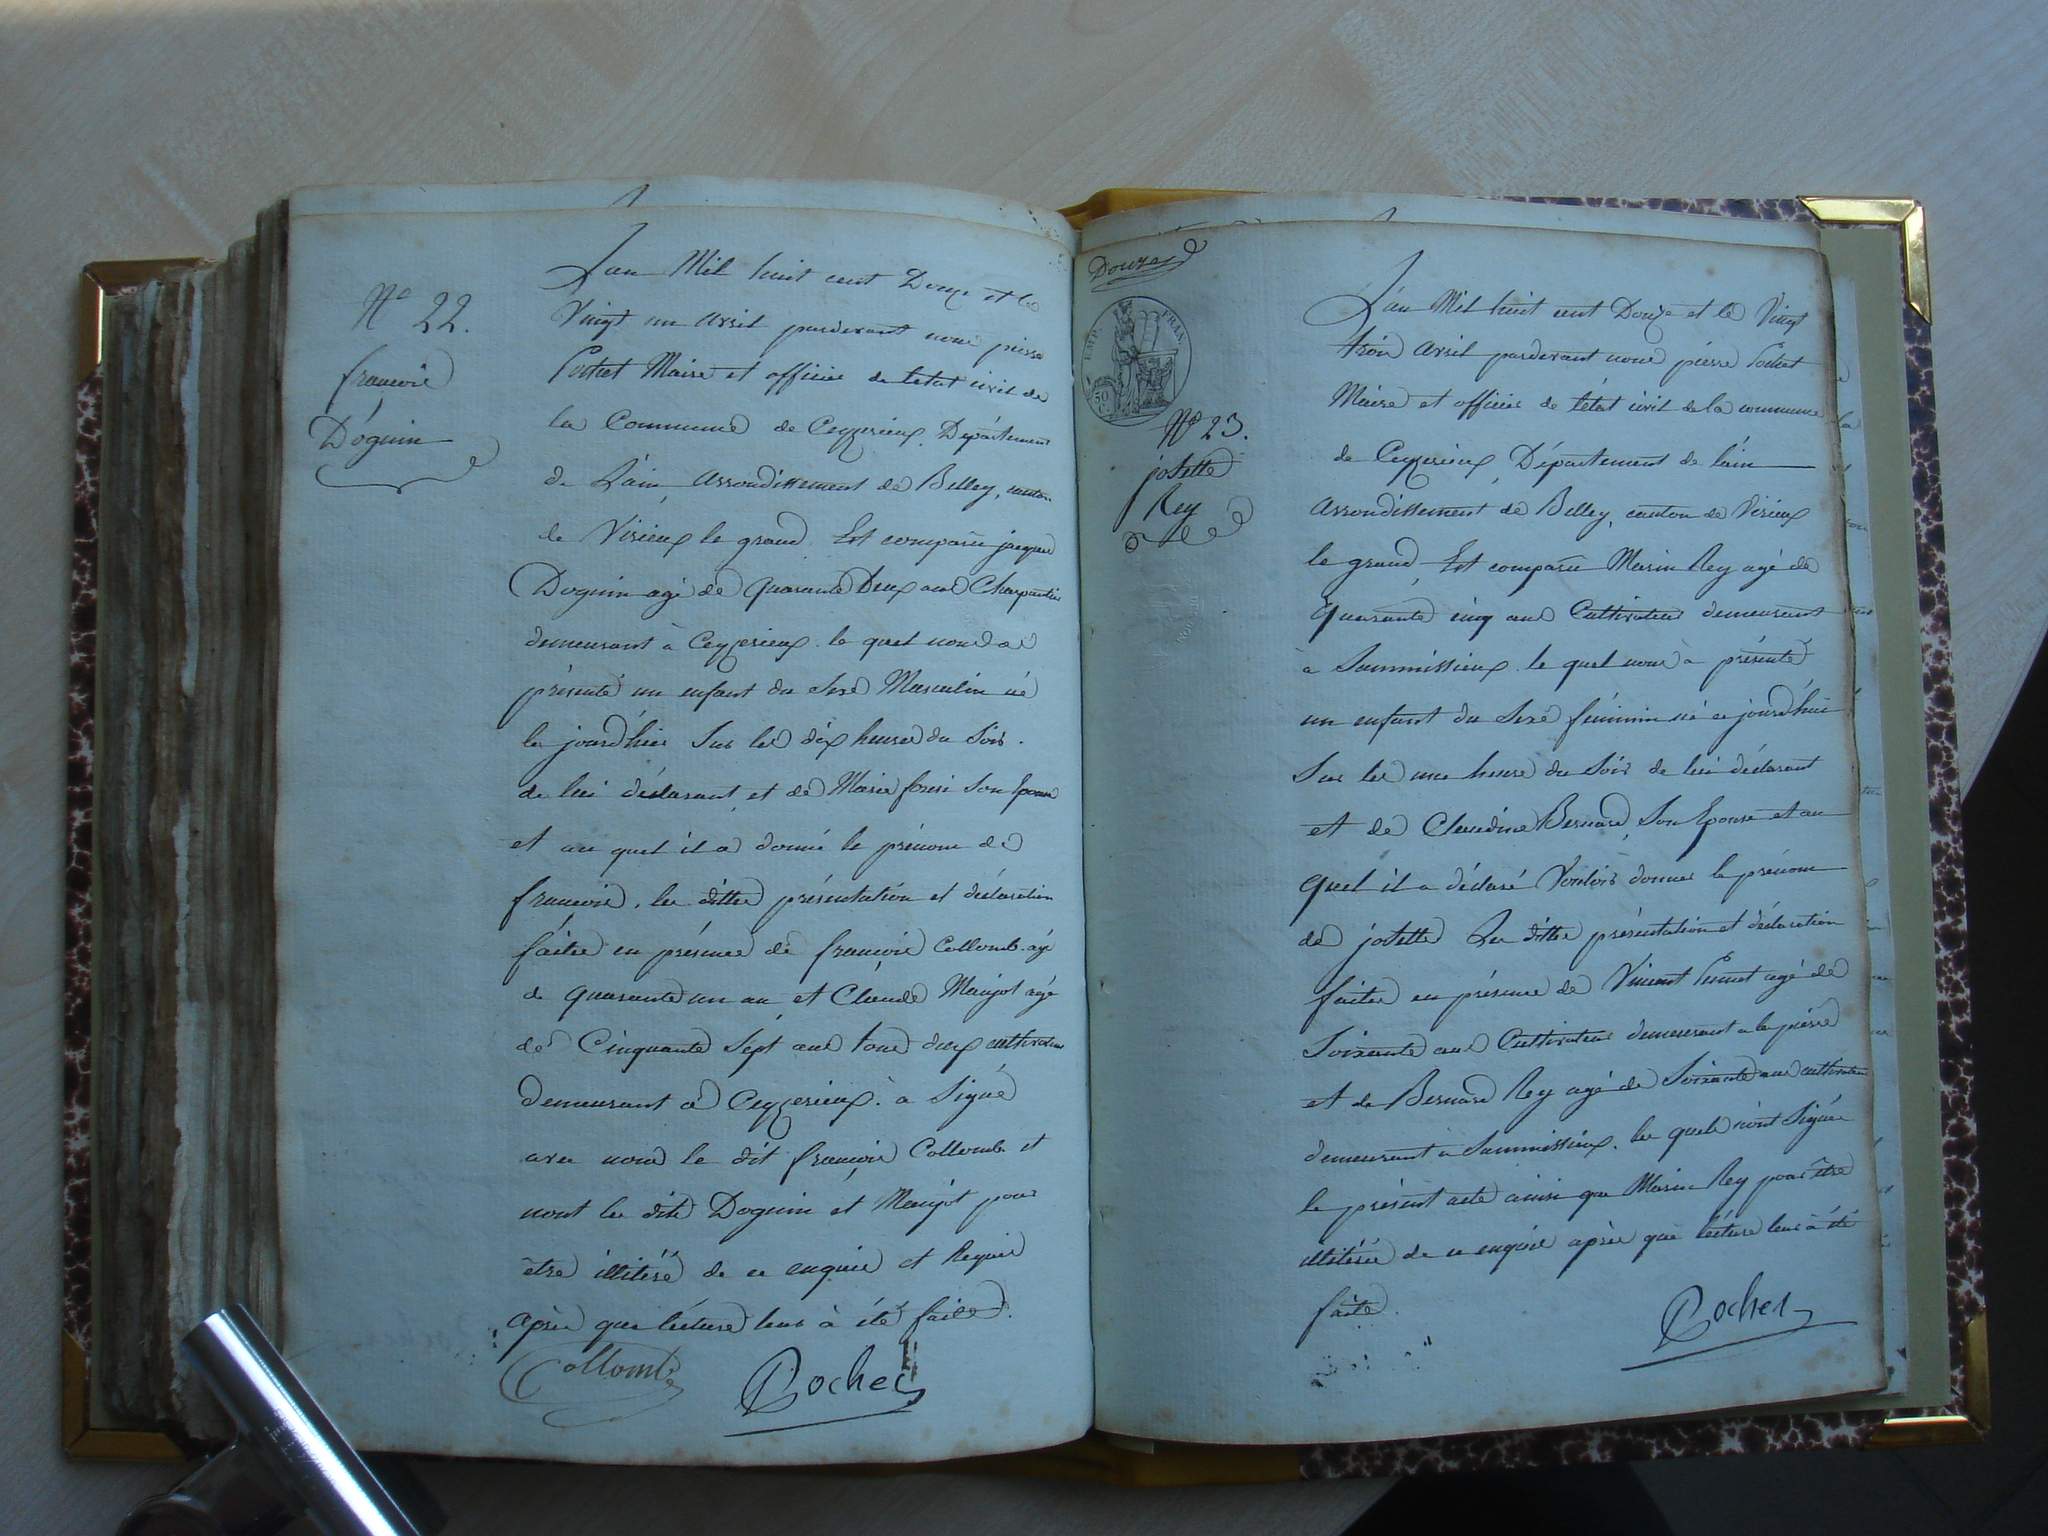 N° 22.
françois
Doguin
L'an Mil huit cent Douze et le
Vingt un avril pardevant nous pierre
Maire et officier de letat civil de
la Commune de Ceyzerieux, Département
de L'ain, arrondissement de Belley, canton
de Virieux le grand, Est comparu jacques
Doguin agé de quarante Deux ans Charpentier
demeurant à Ceyzerieux. le quel nous a
présenté un enfant du sexe Masculin né
le jourd'hier sur les dix heures du soir.
de lui déclarant, et de Marie son Epouse
et au quel il a donné le prénom de
françois, les dittes présentation et déclaration
faites en présence de françois Collomb agé
de quarante un an, et Claude Maujot agé
de Cinquante sept ans tous deux cultivateurs
demeurant à Ceyzerieux. a signé
avec nous le dit françois Collomb et
nont les dits Doguin et Maujot pour
être illitéré de ce enquis et Requis
après que lécture leur à été faite.
Collomb
Pochet
Douze
EMP. FRAN.
50 C.
N° 23.
josette
Rey
L'an Mil huit cent Douze et le Vingt
trois avril pardevant nous pierre
Maire et officier de l'état civil de la commune
de Ceyzerieux, Département de l'ain
arrondissement de Belley, canton de Virieux
le grand, Est comparu Marin Rey agé de
quarante cinq ans Cultivateur demeurant
à Sammissieux. le quel nous à présenté
un enfant du sexe féminin né ce jourd'hui
sur les une heure du soir de lui déclarant
et de Claudine Bernard, son Epouse et au
quel il a déclaré Vouloir donner le prénom
de josette Les dittes présentation et déclaration
faites en présence de Vincent agé de
soixante ans Cultivateur demeurant a la pierre
et de Bernard Rey agé de soixante ans cultivateur
demeurant à Sammissieux. les quels n'ont signés
le présent acte ainsi que Marin Rey pour être
illitérés de ce enquis après que lécture leur à été
faite.
Pochet